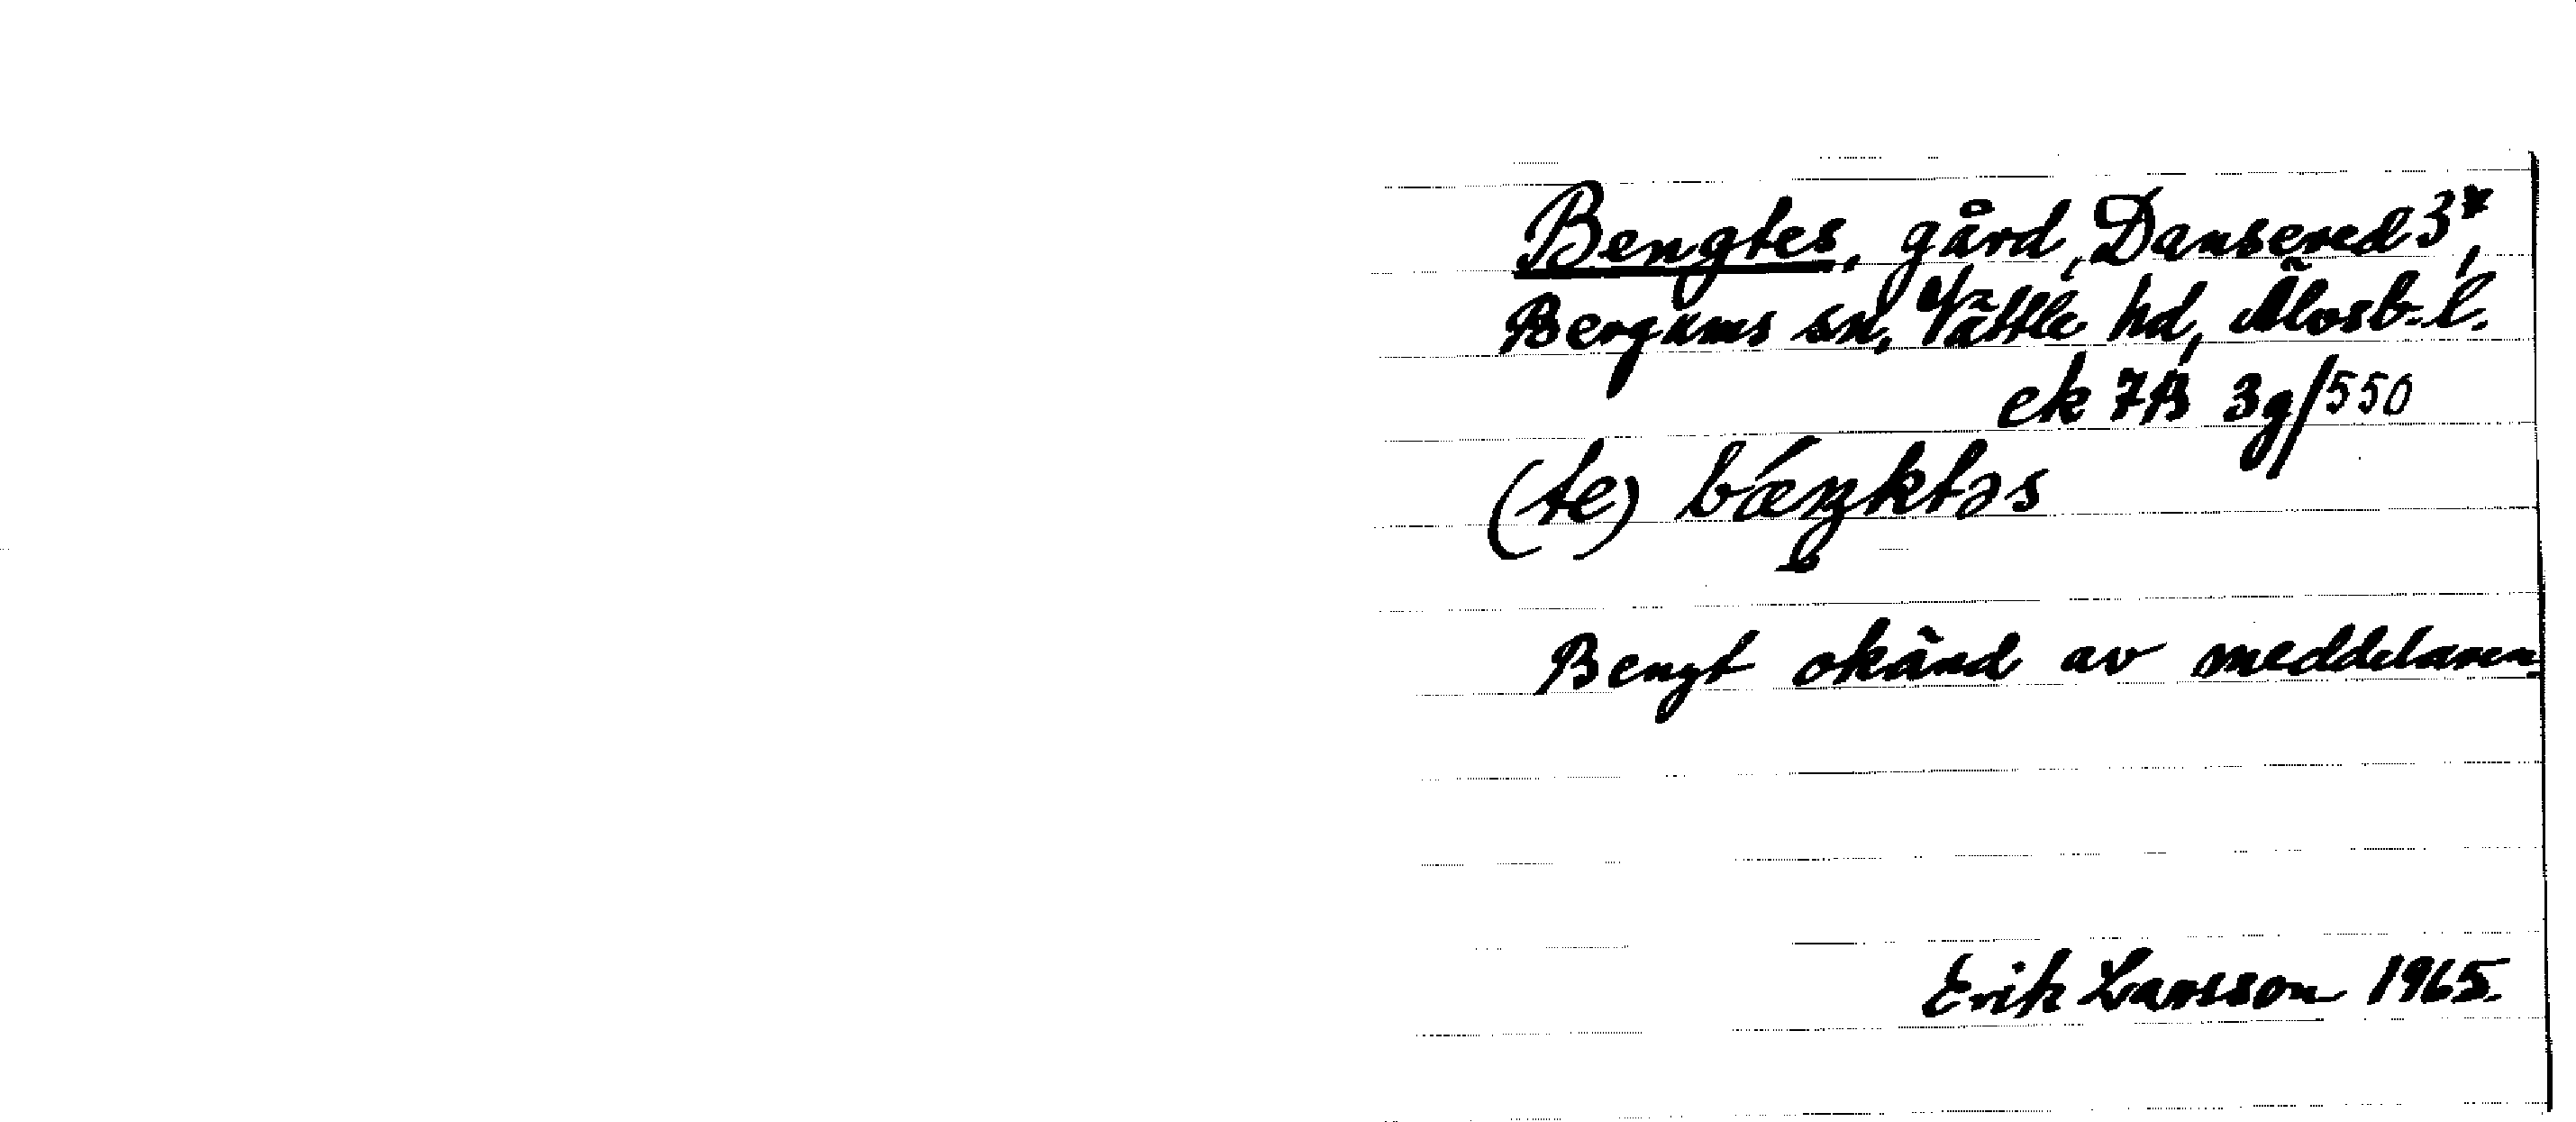 Bengtes, gård, Dansered 3*,
Bergums sn, Vättle hd, Älvsb. l.
ek 7B 3g/550
(te) bǽŋktəs
Bengt okänd av meddelaren
Erik Larsson 1965.